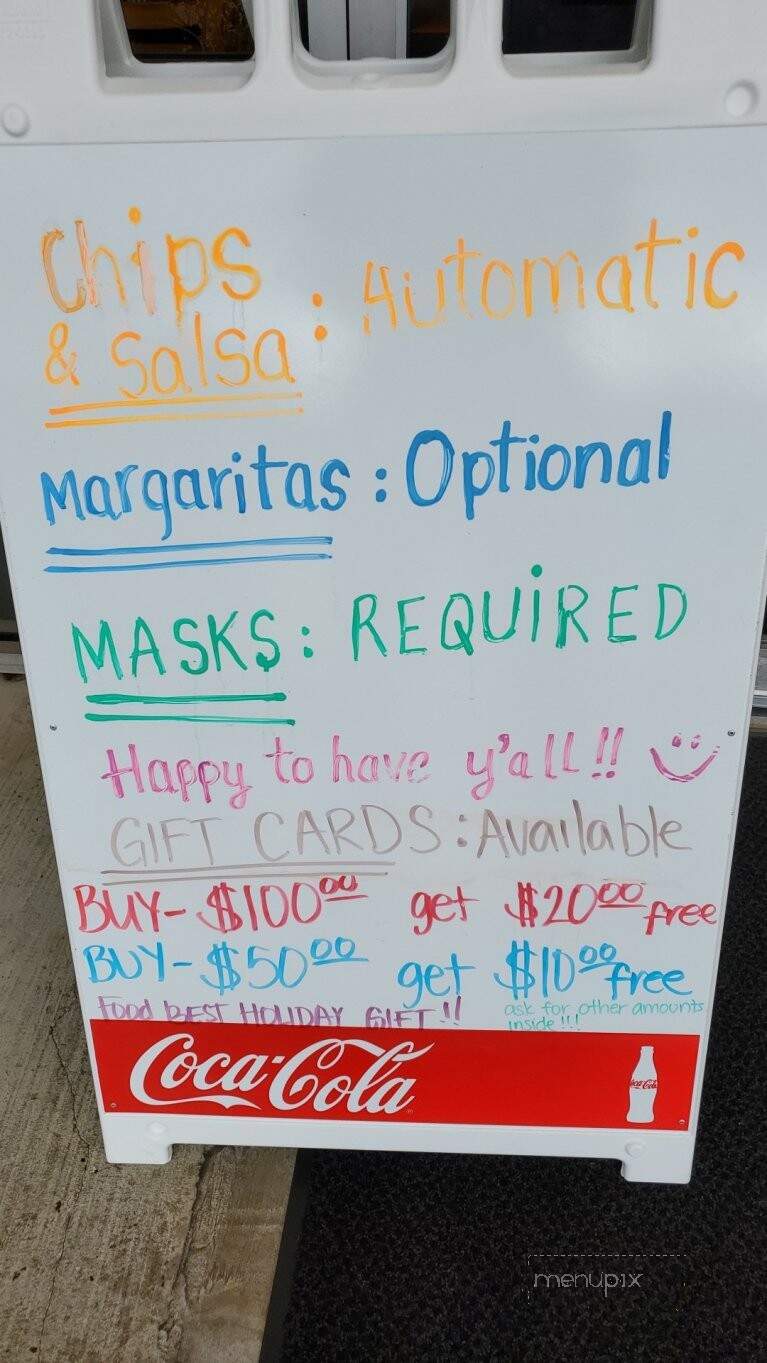 Chips
& Salsa : Automatic
Margaritas : Optional
MASKS : REQUIRED
Happy to have y'all!!
GIFT CARDS : Available
BUY- $100.00 get $20.00 free
BUY- $50.00 get $10.00 free
Food BEST HOLIDAY GIFT!!
ask for other amounts
inside!!!
Coca-Cola
Coca-Cola
menupix